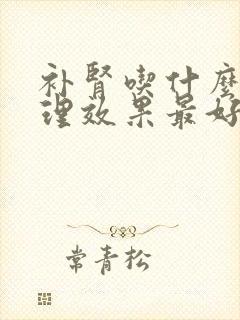 补肾喫什麽
理效果最好
常青松